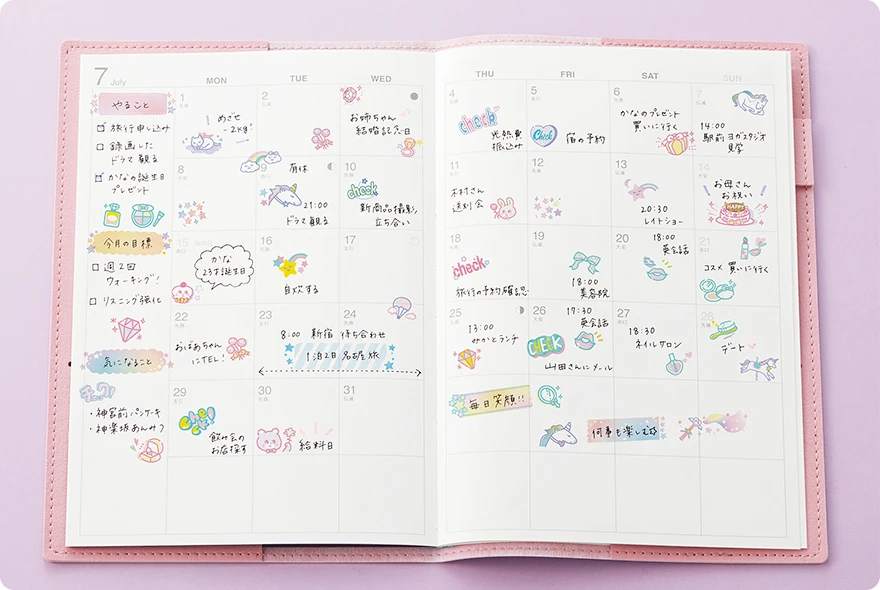 7 July
MON
TUE
WED
THU
FRI
SAT
SUN
やること
旅行申し込み
録画した
ドラマ観る
かなの誕生日
プレゼント
今月の目標
週2回
ウォーキング!
リスニング強化
気になること
・神宮前パンケーキ
・神楽坂あんみつ
1
めざせ
-2kg!
2
3
お姉ちゃん
結婚記念日
4
check
光熱費
振込み
5
Check
宿の予約
6
かなのプレゼント
買いに行く
7
14:00
駅前ヨガスタジオ
見学
8
9
有休
21:00
ドラマ観る
10
check
新商品撮影
立ち合い
11
木村さん
送別会
12
13
20:30
レイトショー
14
お母さん
お祝い
HAPPY
15
かな
23才誕生日
16
自炊する
17
18
check
旅行の予約確認
19
18:00
美容院
20
18:00
英会話
21
コスメ買いに行く
22
おばあちゃん
にTEL!
23
24
8:00 新宿 待ち合わせ
1泊2日 名古屋旅
25
13:00
みかとランチ
26
19:30
英会話
CHECK
山田さんにメール
27
18:30
ネイルサロン
28
デート
29
飲み会の
お店探す
30
給料日
31
毎日笑顔!!
何事も楽しむ